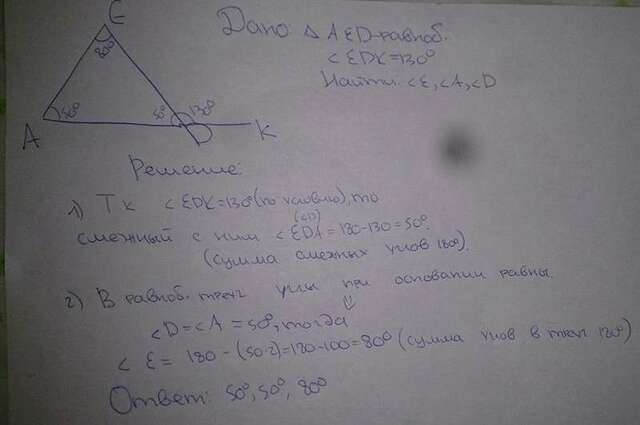 E
80°
50°
50°
130°
A
D
K
Дано: △ AED-равноб.
∠EDK=130°
Найти: ∠E, ∠A, ∠D
Решение:
1) Тк ∠EDK=130° (по условию), то
(∠D)
смежный с ним ∠EDA=180-130=50°.
(сумма смежных углов 180°).
2) В равноб. треуг углы при основании равны.
⇓
∠D=∠A=50°, тогда
∠E=180-(50·2)=180-100=80° (сумма углов в треуг 180°)
Ответ: 50°, 50°, 80°